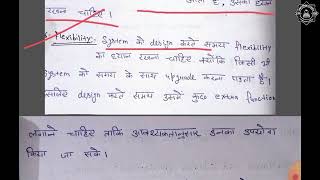 रखना चाहिए।
जाता है, इसका ध्यान
Flexibility:- System को design करते समय flexibility
का ध्यान रखना चाहिए क्योंकि किसी भी
System को समय के साथ upgrade करना पड़ता है।
इसलिए design करते समय उसमें कुछ extra function
लगाने चाहिए ताकि आवश्यकतानुसार उनका उपयोग
किया जा सके।